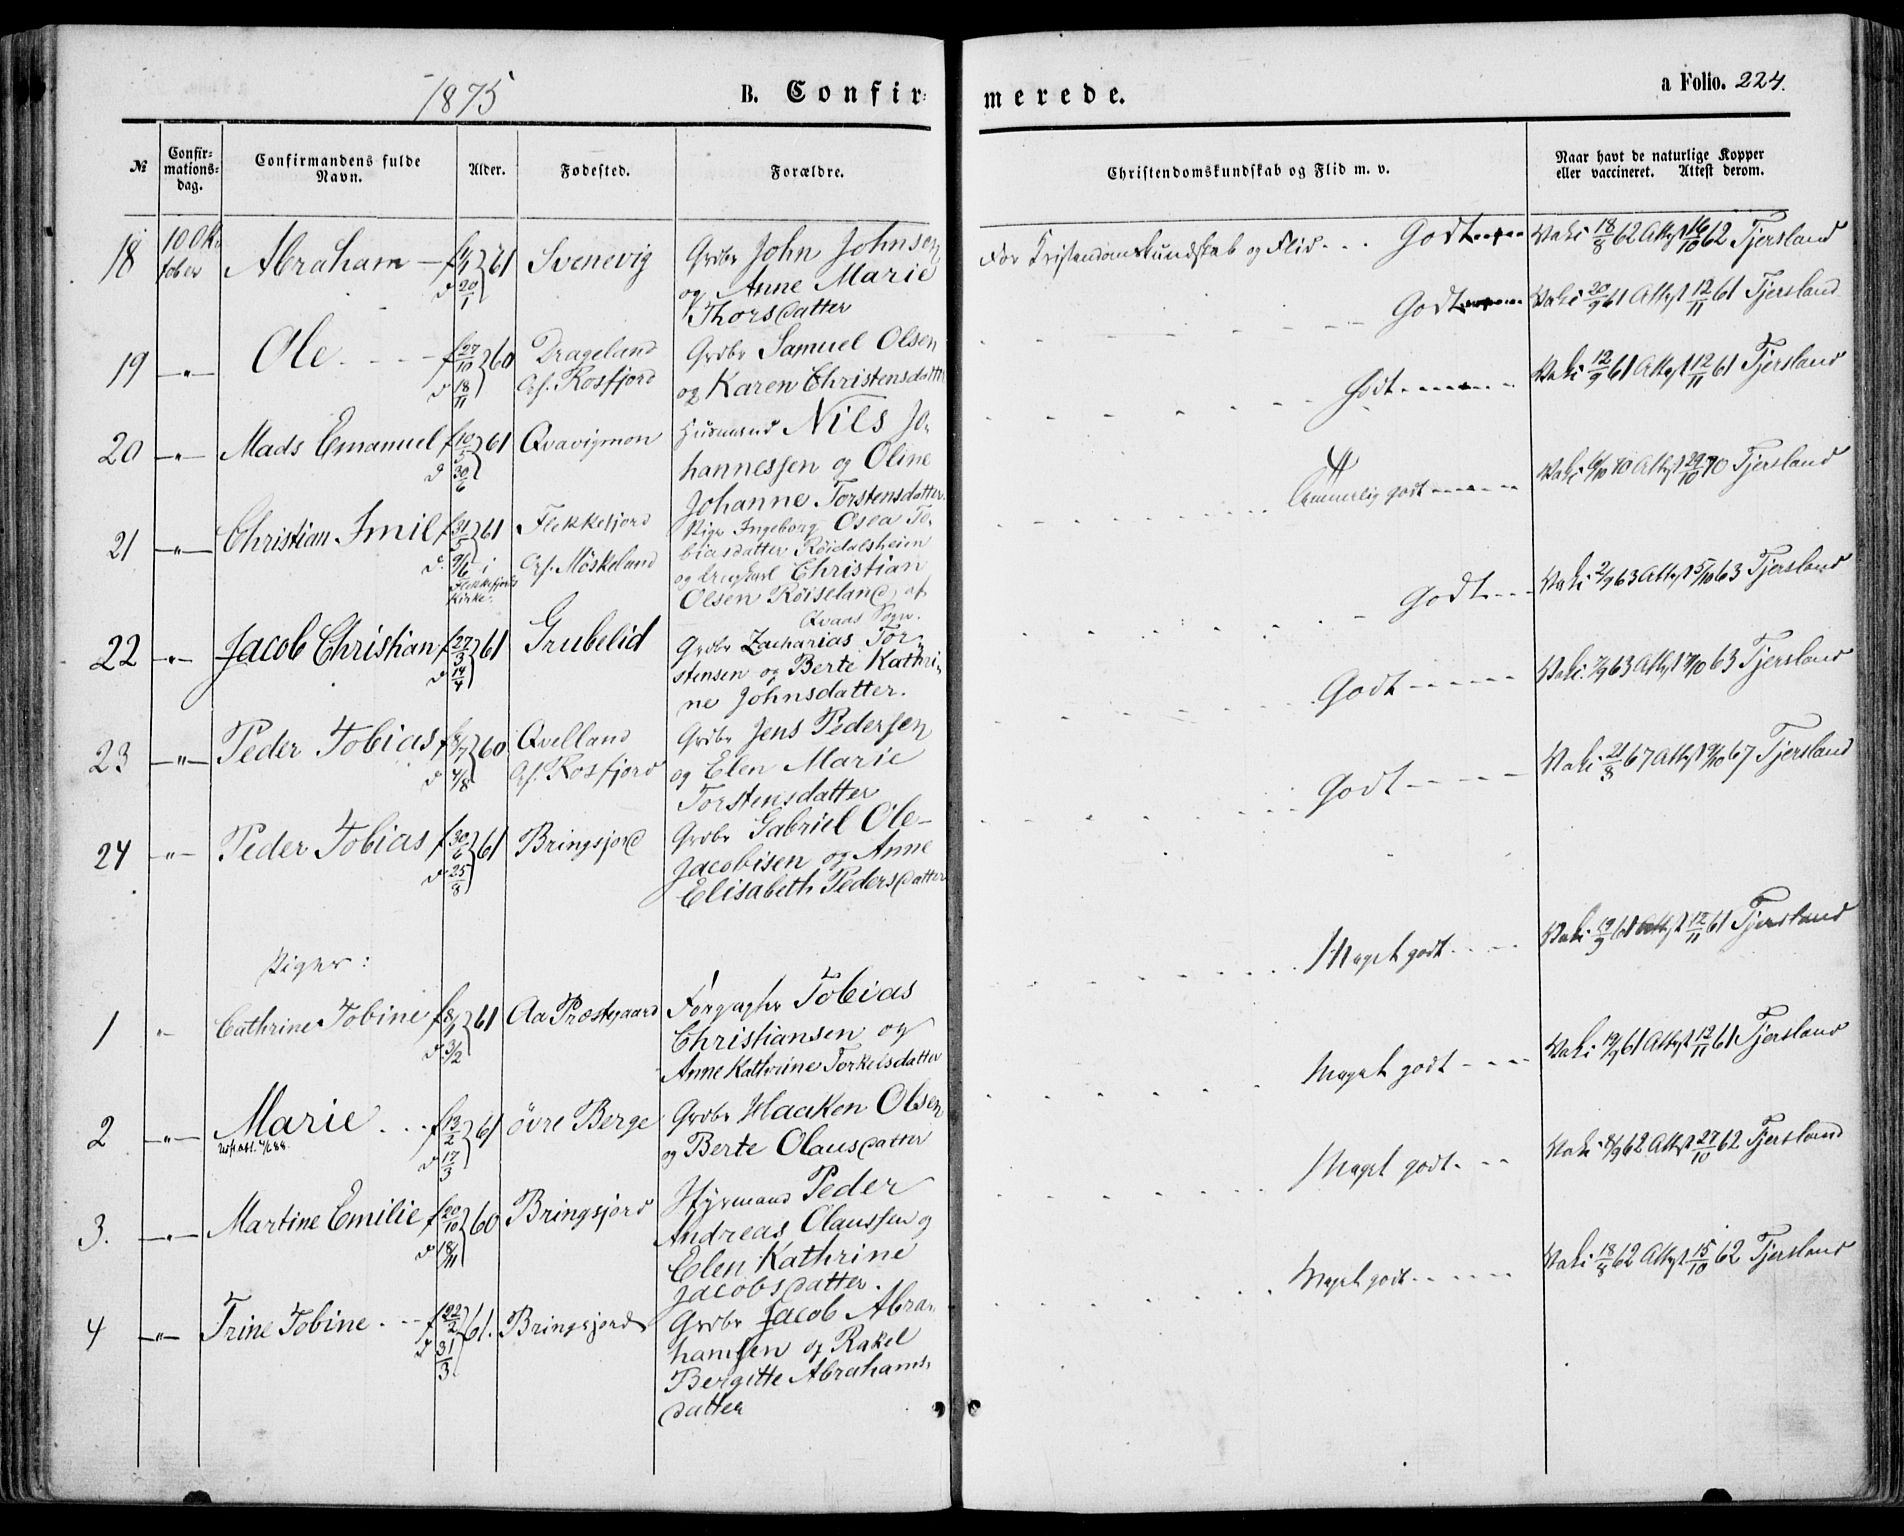 1875
B. Confirmerede.
a Folio. 224.
№
Confirmationsdag.
Confirmandens fulde Navn.
Alder.
Fødested.
Forældre.
Christendomskundskab og Flid m. v.
Naar havt de naturlige Kopper eller vaccineret. Attest derom.
18 10 Oktober Abraham — 61 Svenevig Grdbr John Johnsen
d 20/1 og Anne Marie
Thorsdatter
For Kristendomskundskab og Flid... Godt Vaki 18/8 62 Attest 16/10 62 Tjersland
19 — " — Ole - - - f 27/10 60 Drageland Grdbr Samuel Olsen
d 18/11 Rosfjord og Karen Christensdatter
Godt Vaki 20/9 61 Attest 12/11 61 Tjersland
20 — " — Mads Emanuel f 10/5 61 Qvavigmon Husmand Nils Jo-
d 30/6 hannessen og Oline
Johanne Torstensdatter
Godt Vaki 12/9 61 Attest 12/11 61 Tjersland
21 — " — Christian Imil f 31/5 61 Flekkefjord Pige Ingeborg Osea To-
d. 9/6 i Møskeland biasdatter Røidalsheien
Flekkefjords og Christian
Kirke. Olsen Røiseland af
Qvaas Sogn.
Temmelig godt Vaki 70 Attest 29/10 70 Tjersland
22 — " — Jacob Christian f 27/3 61 Grubelid Grdbr Zacharias Tor-
d 14/4 stensen og Berte Kathri-
ne Johnsdatter.
Godt Vaki 2/9 63 Attest 5/10 63 Tjersland
23 — " — Peder Tobias 60 Qvelland Grdbr Jens Pedersen
d Rosfjord og Elen Marie
Torstensdatter
Godt Vaki 63 Attest 63 Tjersland
24 — " — Peder Tobias f 30/6 61 Bringsjord Grdbr Gabriel Ole-
d 25/8 Jacobisen og Anne
Elisabeth Pedersdatter
Godt Vaki 21/8 67 Attest 67 Tjersland
Piger:
1 " Cathrine Tobine f 61 Aa Præstgaard Forpagter Tobias
d 3/2 Christiansen og
Anne Kathrine Torkelsdatter
Meget godt Vaki 19/9 61 Attest 12/11 61 Tjersland
2 — " — Marie - - - f 13/2 61 øvre Berge Grdbr Haaken Olsen
d 17/3 og Berte Olausdatter
Meget godt Vaki 19/9 61 Attest 12/11 61 Tjersland
3. — " — Martine Emilie f 20/10 60 Bringsjord Styrmand Peder
d 18/11 Andreas Olaussen og
Elen Kathrine
Jacobsdatter.
Meget godt Vaki 62 Attest 27/10 62 Tjersland
4 — " — Trine Tobine - - - f 22/2 61. Bringsjord Grdbr Jacob Abra-
d 31/3 hamsen og Rakel
Bergitte Abrahams-
datter
Meget godt Vaki 18/8 62 Attest 15/10 62 Tjersland